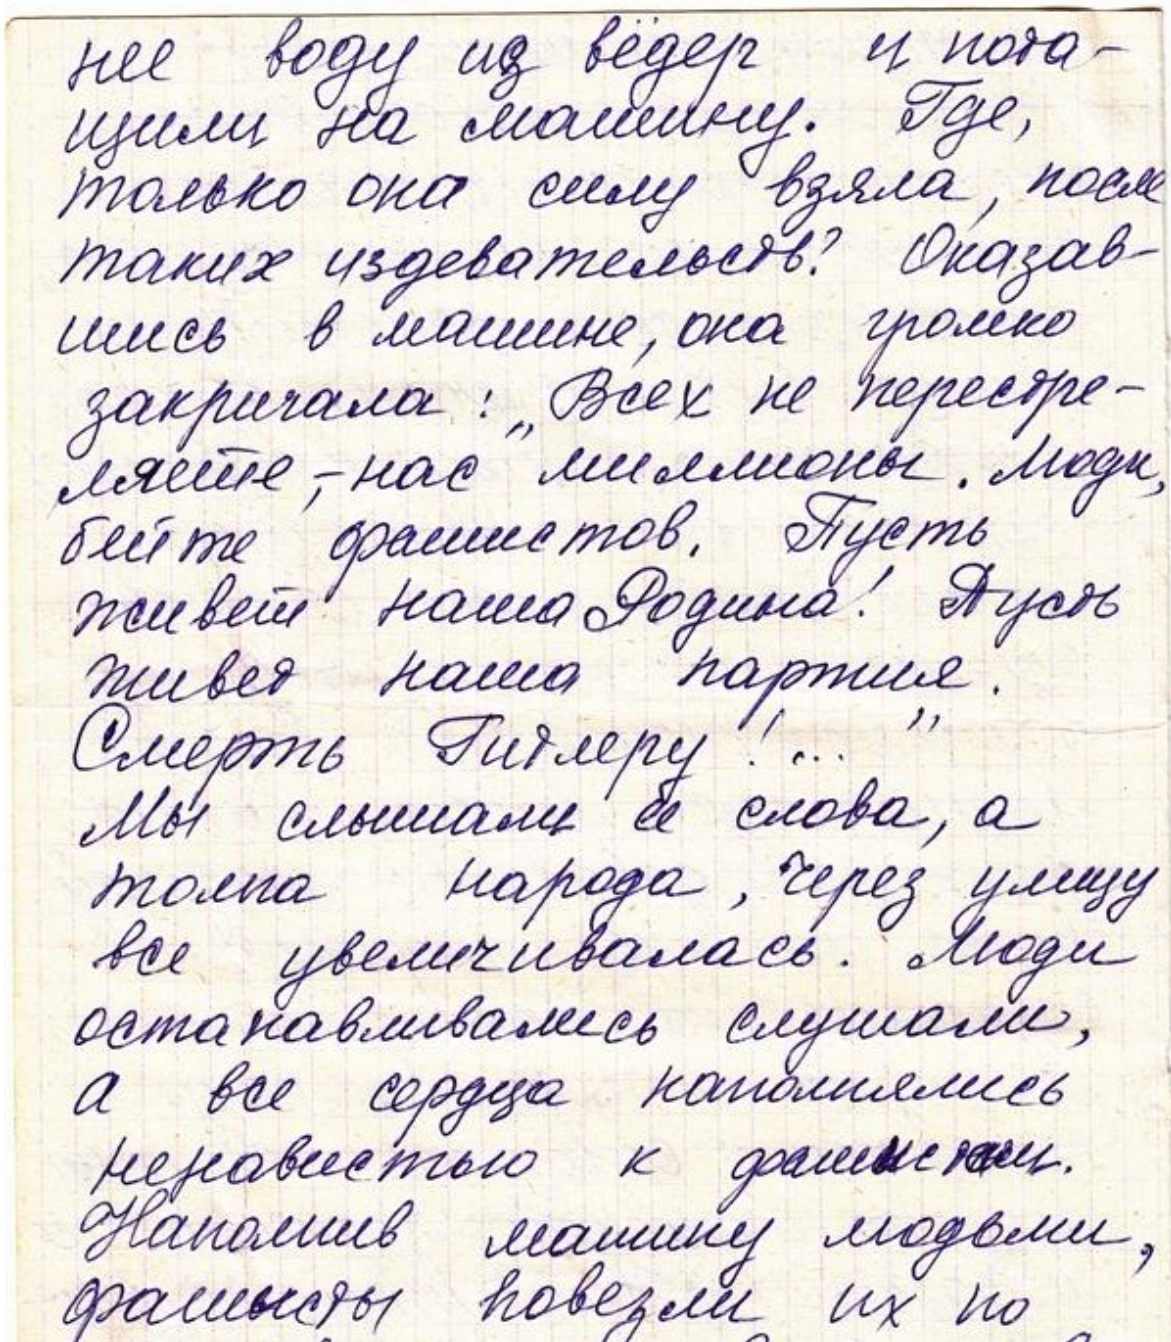 нее воду из вёдер и пота-
щили на машину. Где,
только она силу взяла, после
таких издевательств? Оказав-
шись в машине, она громко
закричала: „Всех не перестре-
ляете, – нас миллионы. Люди,
бейте фашистов. Пусть
живет наша Родина! Пусть
живет наша партия.
Смерть Гитлеру!...”
Мы слышали её слова, а
толпа народа, через улицу
все увеличивалась. Люди
останавливались слушали,
а все сердца наполнялись
ненавистью к фашистам.
Наполнив машину людьми,
фашисты повезли их по